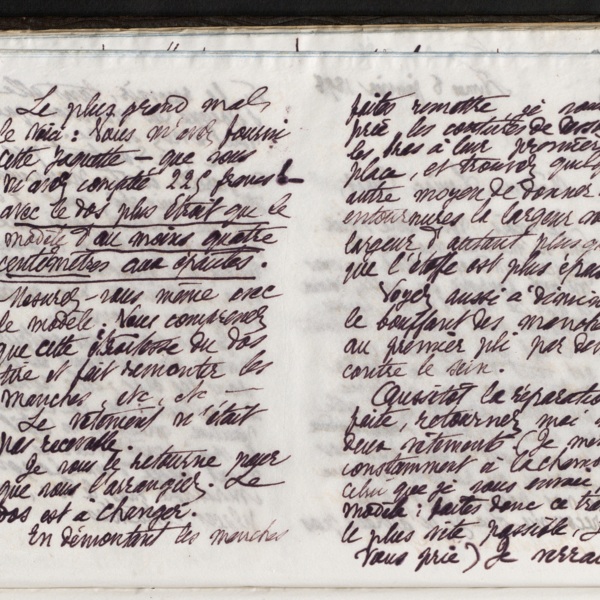 Le plus grand mal
le voici : Vous m'avez fourni
cette jaquette – que vous
m'avez comptée 225 francs –
avec le dos plus étroit que le
modèle d'au moins quatre
centimètres aux épaules.
Mesurez-vous même avec
le modèle. Vous comprenez
que cette étroitesse du dos
tire et fait remonter les
manches, etc, etc –
Le vêtement n'était
pas recevable.
Je vous le retourne pour
que vous l'arrangiez. Le
dos est à changer.
En démontant les manches
faites remettre je vous
prie les coutures de dessous
les bras à leur première
place, et trouvez quelq
autre moyen de donner
entournures la largeur
largeur d'autant plus
que l'étoffe est plus épai
Voyez aussi à dimin
le bouffant des manche
au premier pli par de
contre le sein.
Aussitôt la réparation
faite, retournez moi
deux vêtements (Je me
constamment à la
celui que je vous envoie
modèle : faites donc ce tra
le plus vite possible, Je
vous prie) Je verrai